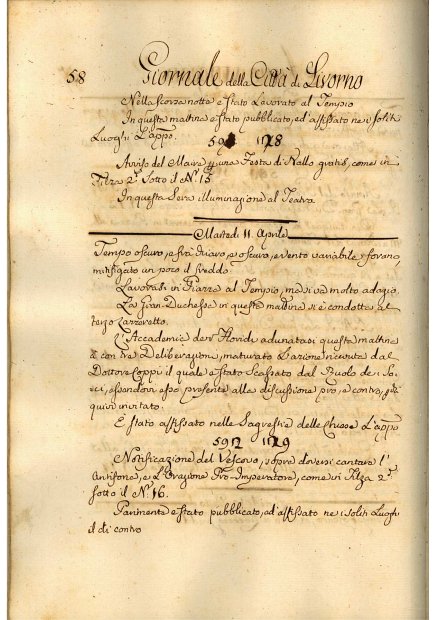 58
Giornale della Città di Livorno
Nella scorsa notte è stato Lavorato al Tempio
In questa mattina è stato pubblicato, ed affissato nei soliti
Luoghi L'appo.
59 1128
Avviso del Maire una Festa di Ballo gratis, come in
Filza 2.ª sotto il N.º 15
In questa Sera illuminazione al Teatro
Martedì 11. Aprile
Tempo oscuro, e frà chiaro, e oscuro, e vento variabile
mitigato un poco il freddo
Lavorasi in Piazza al Tempio, ma si va molto adagio.
La Gran-Duchessa in questa mattina si è condotta al
terzo Lazzeretto.
L'Accademia dei Floridi adunatasi questa mattina
con tre Deliberazioni, maturato
Dottore Coppi il quale è stato Scassato dal Ruolo de i So-
ci, essendovi esso presente alla discussione pro, e contro,
quivi invitato.
È stato affissato nelle Sagrestie delle Chiese L'appo
5912 1129
Notificazione del Vescovo, sopra doversi cantare l'
Antifona, e L'Orazione Pro-Imperatore, come in Filza 2.ª
sotto il N.º 16.
Parimente è stato pubblicato, ed affissato ne i soliti Luoghi
il di contro